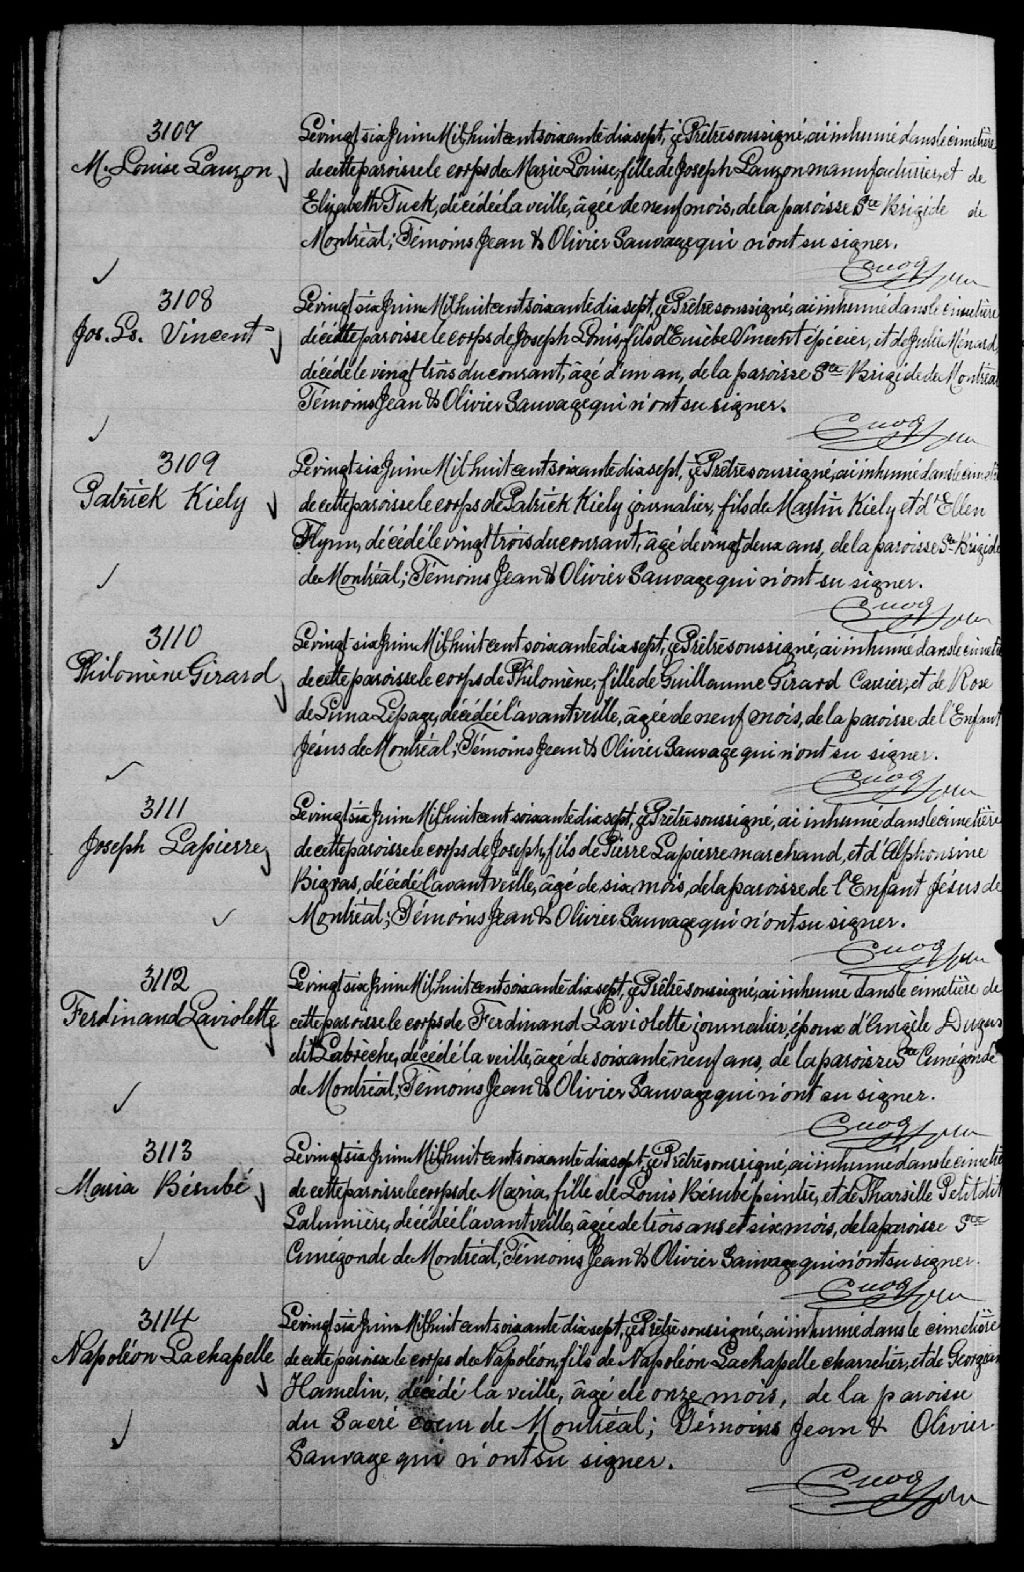 3107
M. Louise Lauzon
Le vingt six Juin Mil huit cent soixante dix sept, je Prêtre soussigné, ai inhumé dans le cimetière
de cette paroisse le corps de Marie Louise, fille de Joseph Lauzon manufacturier, et de
Elizabeth Tuck, décédée la veille, âgée de neuf mois, de la paroisse Ste Brigide de
Montréal; Témoins Jean & Olivier Sauvage qui n'ont su signer.
Cuoq
3108
Jos. Ls. Vincent
Le vingt six Juin Mil huit cent soixante dix sept, je Prêtre soussigné, ai inhumé dans le cimetière
de cette paroisse le corps de Joseph Louis, fils d'Eusèbe Vincent épicier, et de Julie Ménard,
décédé le vingt trois du courant, âgé d'un an, de la paroisse Ste Brigide de Montréal
Témoins Jean & Olivier Sauvage qui n'ont su signer.
Cuoq
3109
Patrick Kiely
Le vingt six Juin Mil huit cent soixante dix sept, je Prêtre soussigné, ai inhumé dans le cimetière
de cette paroisse le corps de Patrick Kiely journalier, fils de Martin Kiely et d'Ellen
Flynn, décédé le vingt trois du courant, âgé de vingt deux ans, de la paroisse Ste Brigide
de Montréal; Témoins Jean & Olivier Sauvage qui n'ont su signer.
Cuoq
3110
Philomène Girard
Le vingt six Juin Mil huit cent soixante dix sept, je Prêtre soussigné, ai inhumé dans le cimetière
de cette paroisse le corps de Philomène, fille de Guillaume Girard Carrier, et de Rose
de Lima Lepage, décédée l'avant veille, âgée de neuf mois, de la paroisse de l'Enfant
Jésus de Montréal; Témoins Jean & Olivier Sauvage qui n'ont su signer.
Cuoq
3111
Joseph Lapierre
Le vingt six Juin Mil huit cent soixante dix sept, je Prêtre soussigné, ai inhumé dans le cimetière
de cette paroisse le corps de Joseph, fils de Pierre Lapierre marchand, et d'Alphonsine
Bigras, décédé l'avant veille, âgé de six mois, de la paroisse de l'Enfant Jésus de
Montréal; Témoins Jean & Olivier Sauvage qui n'ont su signer.
Cuoq
3112
Ferdinand Laviolette
Le vingt six Juin Mil huit cent soixante dix sept, je Prêtre soussigné, ai inhumé dans le cimetière de
cette paroisse le corps de Ferdinand Laviolette journalier, époux d'Angèle Dugas
dit Labrèche, décédé la veille, âgé de soixante neuf ans, de la paroisse Ste Cunégonde
de Montréal; Témoins Jean & Olivier Sauvage qui n'ont su signer.
Cuoq
3113
Maria Bérubé
Le vingt six Juin Mil huit cent soixante dix sept, je Prêtre soussigné, ai inhumé dans le cimetière
de cette paroisse le corps de Maria, fille de Louis Bérubé peintre, et de Tharsille Petit dit
Lalumière, décédée l'avant veille, âgée de trois ans et six mois, de la paroisse Ste
Cunégonde de Montréal; Témoins Jean & Olivier Sauvage qui n'ont su signer.
Cuoq
3114
Napoléon Lachapelle
Le vingt six Juin Mil huit cent soixante dix sept, je Prêtre soussigné, ai inhumé dans le cimetière
de cette paroisse le corps de Napoléon, fils de Napoléon Lachapelle charretier, et de Georgiana
Hamelin, décédé la veille, âgé de onze mois, de la paroisse
du Sacré coeur de Montréal; Témoins Jean & Olivier
Sauvage qui n'ont su signer.
Cuoq